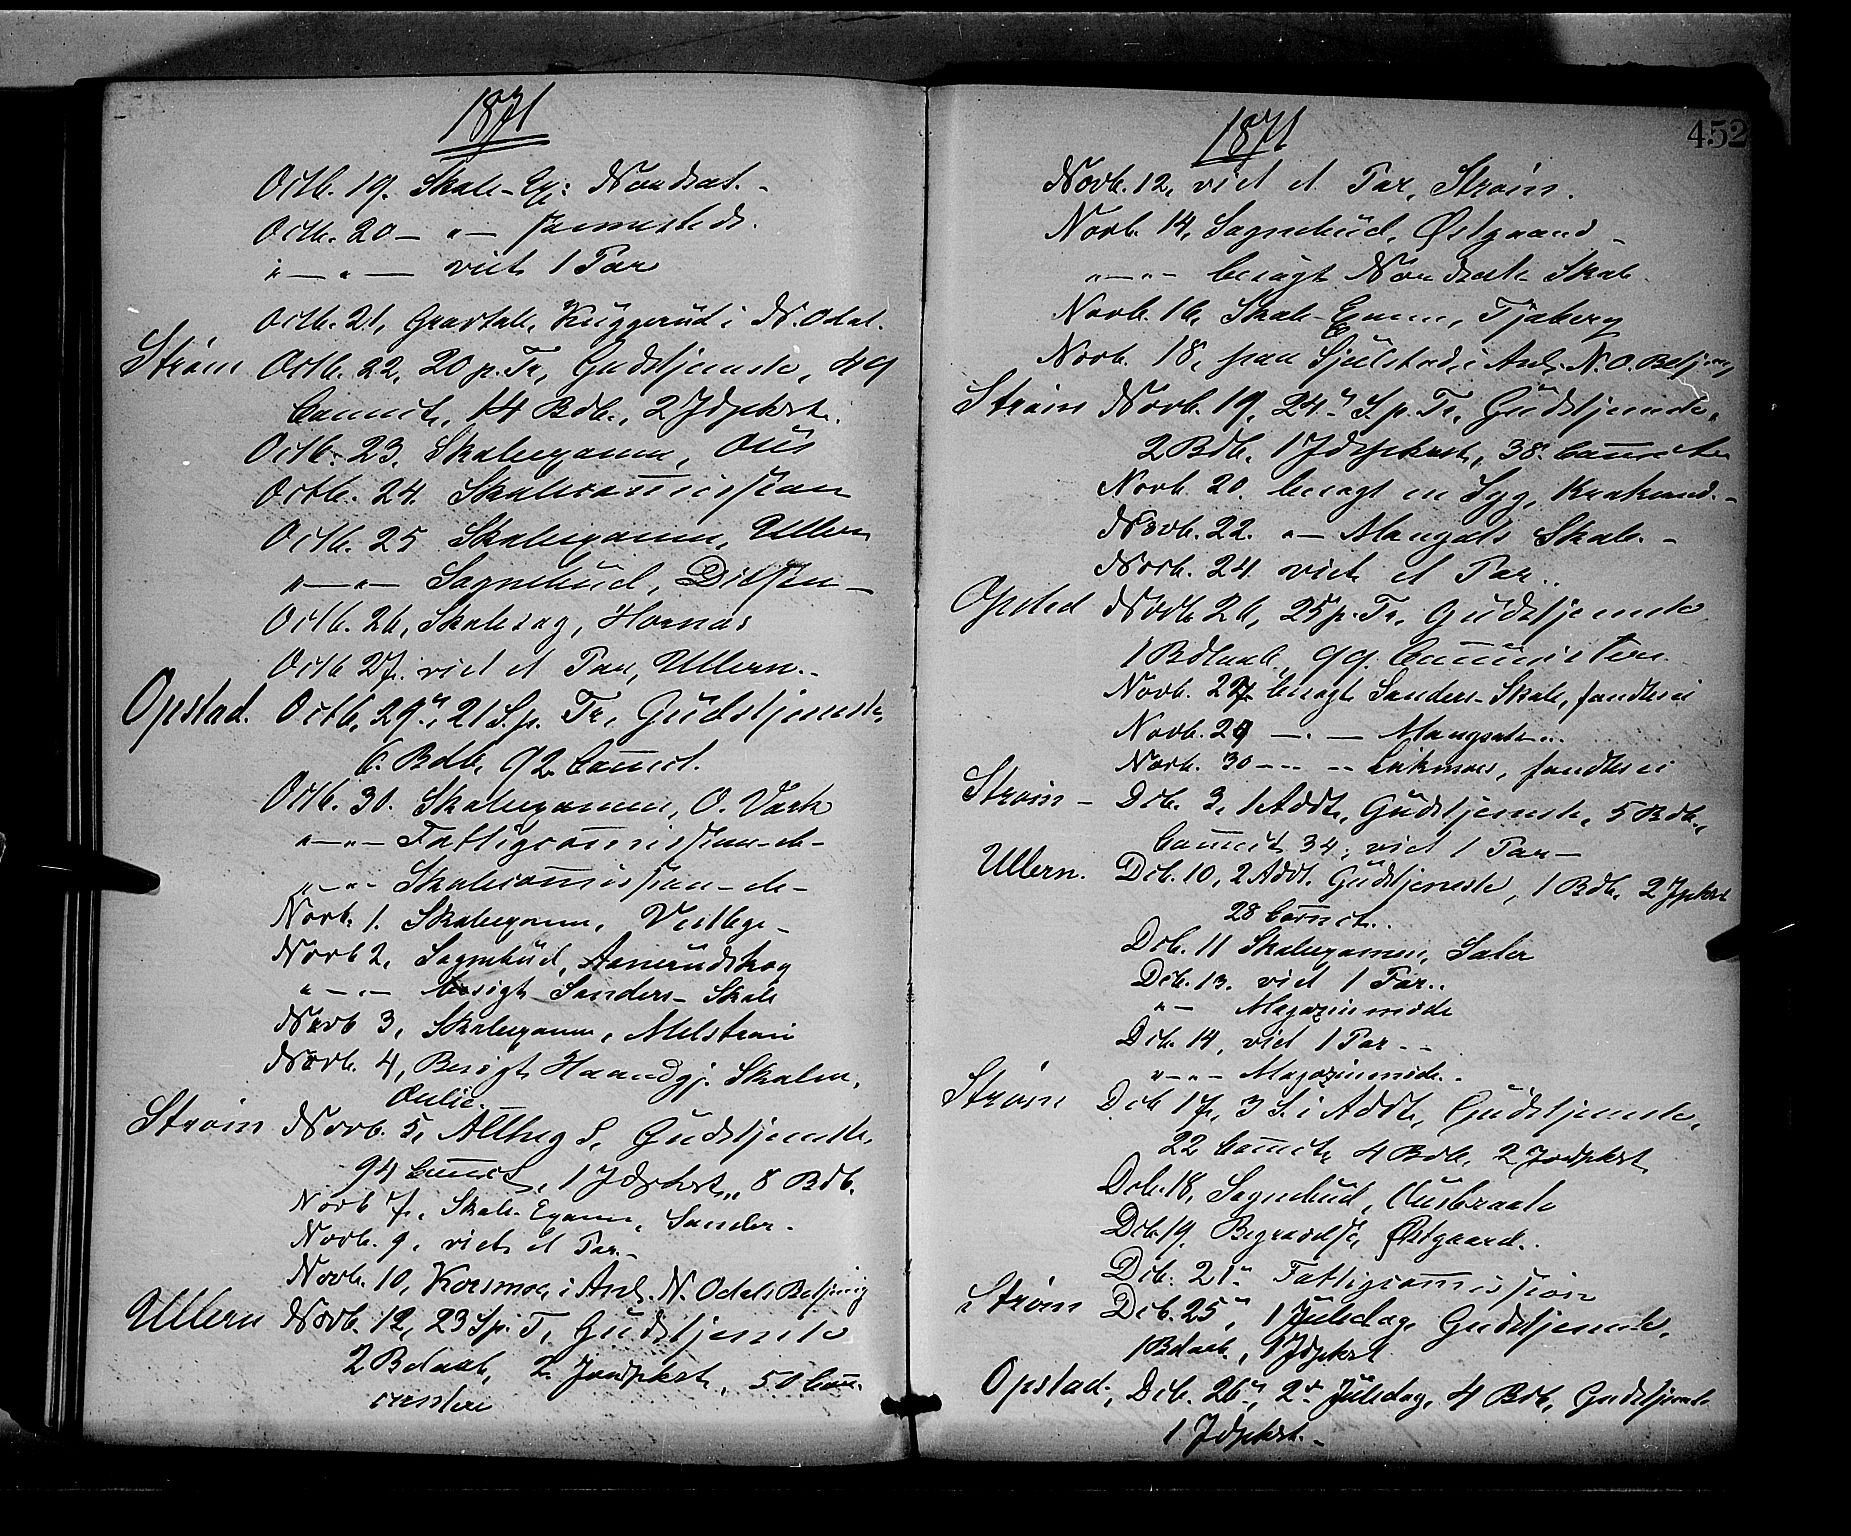 1871
Octb. 19. Skole-Ex: Nordsat. -
Octb. 20 - " - sammesteds.
" - " - viet 1 Par
Octb. 21, Gravtale, Kuggerud i N. Odal.
Strøm Octb. 22, 20 p. Tr, Gudstjeneste, 49
Com̅ct, 14 Bdb., 2 Jdpkst.
Octb. 23. Skoleexamen, Ous
Octb. 24. Skolecom̅ission
Octb. 25 Skoleexamen, Ullern
" - " - Sognebud, Disen -
Octb. 26, Skolesag, Hornæs
Octb 27. viet et Par, Ullern. -
Opstad. Octb. 29, 21 S. p. Tr, Gudstjeneste,
6 Bdb, 92 Com̅ct.
Octb. 30. Skoleexamen, O. Værk
" - " - Fattigcom̅ission - do -
" - " - Skolecom̅ission - do -
Novb. 1. Skoleexamen,
Novb 2, Sognebud, Aanerudskog
" - " - besøgt Sanders - Skole
Novb 3, Skoleexamen, Melstrøm
Novb. 4, Besøgt Haandgj. Skolen,
Strøm Novb. 5, Allheg S, Gudstjeneste,
94 Com̅ct, 1 Jdpkst, 8 Bdb.
Novb 7, Skole Examen, Sander -
Novb. 9, viet et Par -
Novb. 10, Korsmoe, i Anl. N. Odals
Ullern Novb. 12, 23 S p. T, Gudstjeneste
2 Bdaab, 2 Jordpkst, 50 Com̅u-
nicantere
1871
452
Novb. 12, viet et Par, Strøm.
Novb. 14, Sognebud, Østgaard -
" - " - besøgt Nordsæts Skole
Novb. 16, Skole-Exam, Tjaberg
Novb. 18, paa Sjulstad, i Anl. N. O.
Strøm Novb. 19, 24 S. p. Tr, Gudstjeneste,
2 Bdb, 1 Jdspkast, 38 Com̅ct
Novb. 20. besøgt en Syg, Krakerud. -
Novb. 22. " - Mangols Skole. -
Novb. 24 viet et Par..
Opstad Novb. 26, 25 p. Tr, Gudstjeneste
1 Bdaab, 99 Com̅unictere
Novb. 27 besøgt Sanders-Skole, fandtes ei
Novb. 29 - " - Mangsols...
Novb. 30 - " - fandtes ei
Strøm - Dcb. 3, 1 Addt, Gudstjeneste, 5 Bdb,
Com̅ct 34, viet 1 Par -
Ullern. Dcb. 10, 2 Addt. Gudstjeneste, 1 Bdb, 2 Jpkst
28 Com̅ct..
Dcb. 11 Skoleexamen, Sæter
Dcb. 13. viet 1 Par..
" - Magazinmøde
Dcb. 14, viet 1 Par - -
" - " - Magazinmøde. -
Strøm Dcb 17, 3 S. i Addt, Gudstjeneste,
22 Com̅ct, 4 Bdb, 2 Jordpkst
Dcb. 18, Sognebud, Ousbraate
Dcb. 19. Begravelse, Østgaard..
Dcb. 21. Fattigcom̅ission
Strøm Dcb. 25, 1 Juledag, Gudstjeneste.
1 Bdaab, 1 Jdpkst
Opstad, Dcb. 26, 2 Juledag, 4 Bdb, Gudstjeneste
1 Jdpkst. -